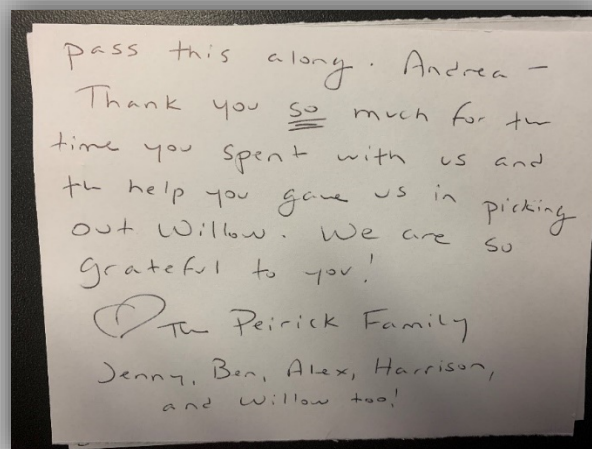 pass this along. Andrea –
Thank you so much for the
time you spent with us and
the help you gave us in picking
out Willow. We are so
grateful to you!
The Peirick Family
Jenny, Ben, Alex, Harrison,
and Willow too!